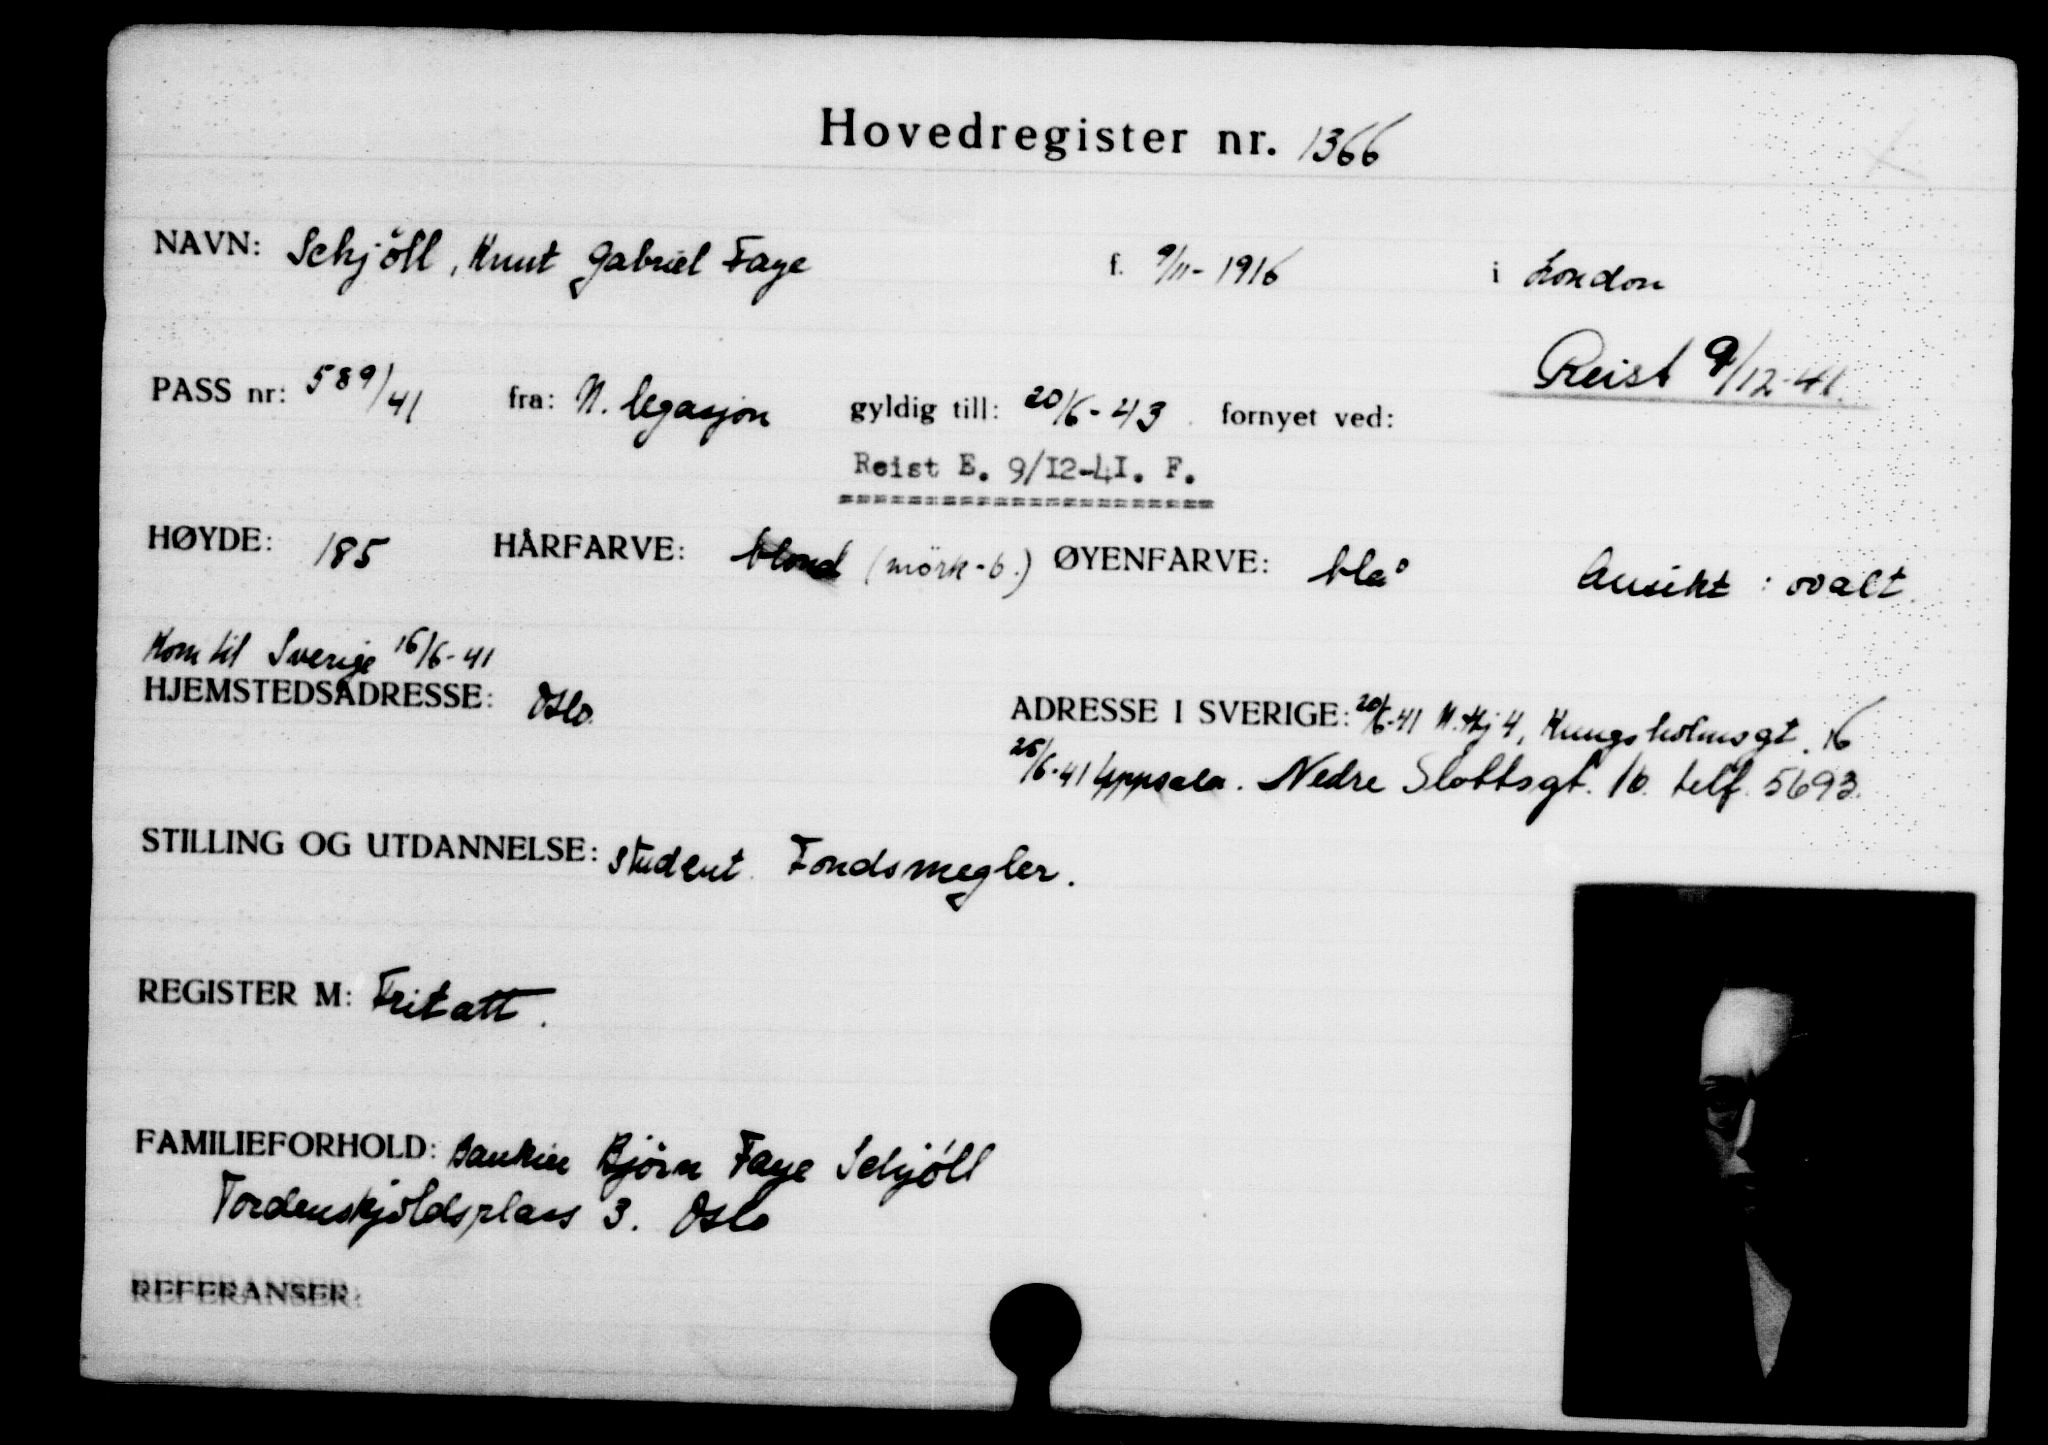 Hovedregister nr. 1366
NAVN: Schjöll, Knut Gabriel Faye f. 9/11-1916 i London
Reist 9/12-41.
PASS nr: 589/41 fra: N. legasjon gyldig till: 20/6-43 fornyet ved:
Reist E. 9/I2-4I. F.
HØYDE: 185 HÅRFARVE: blond (mörk-b.) ØYENFARVE: blå Ansikt: ovalt.
Kom til Sverige 16/6-41
HJEMSTEDSADRESSE: Oslo. ADRESSE I SVERIGE: 20/6-41 Kungsholmsgt. 16
25/6-41 Uppsala. Nedre Slottsgt. 10. telf. 5693.
STILLING OG UTDANNELSE: student. Fondsmegler.
REGISTER M: Fritatt.
FAMILIEFORHOLD: Bankier Bjørn Faye Schjóll
Tordenskjoldsplass 3. Oslo
REFERANSER: